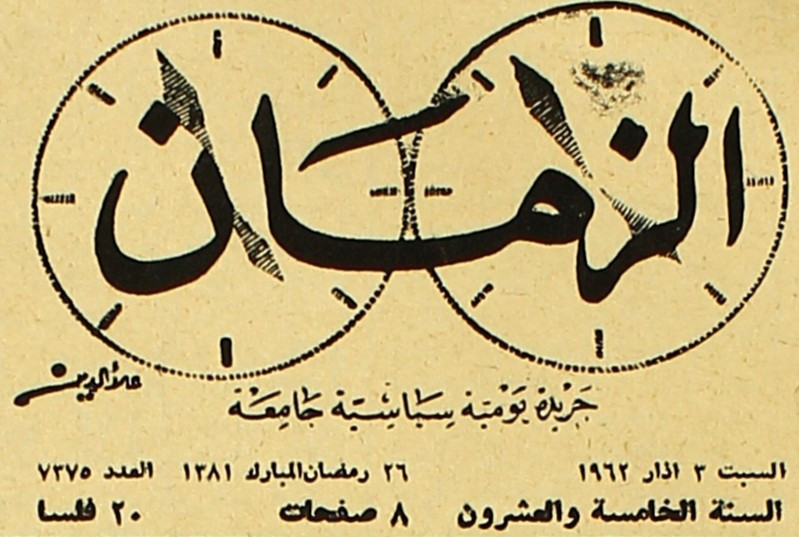 الزمان
علاء الدين
جريدة يومية سياسية جامعة
السبت ٣ اذار ١٩٦٢ ٢٦ رمضان المبارك ١٣٨١ العدد ٧٣٧٥
السنة الخامسة والعشرون ٨ صفحات ٢٠ فلسا